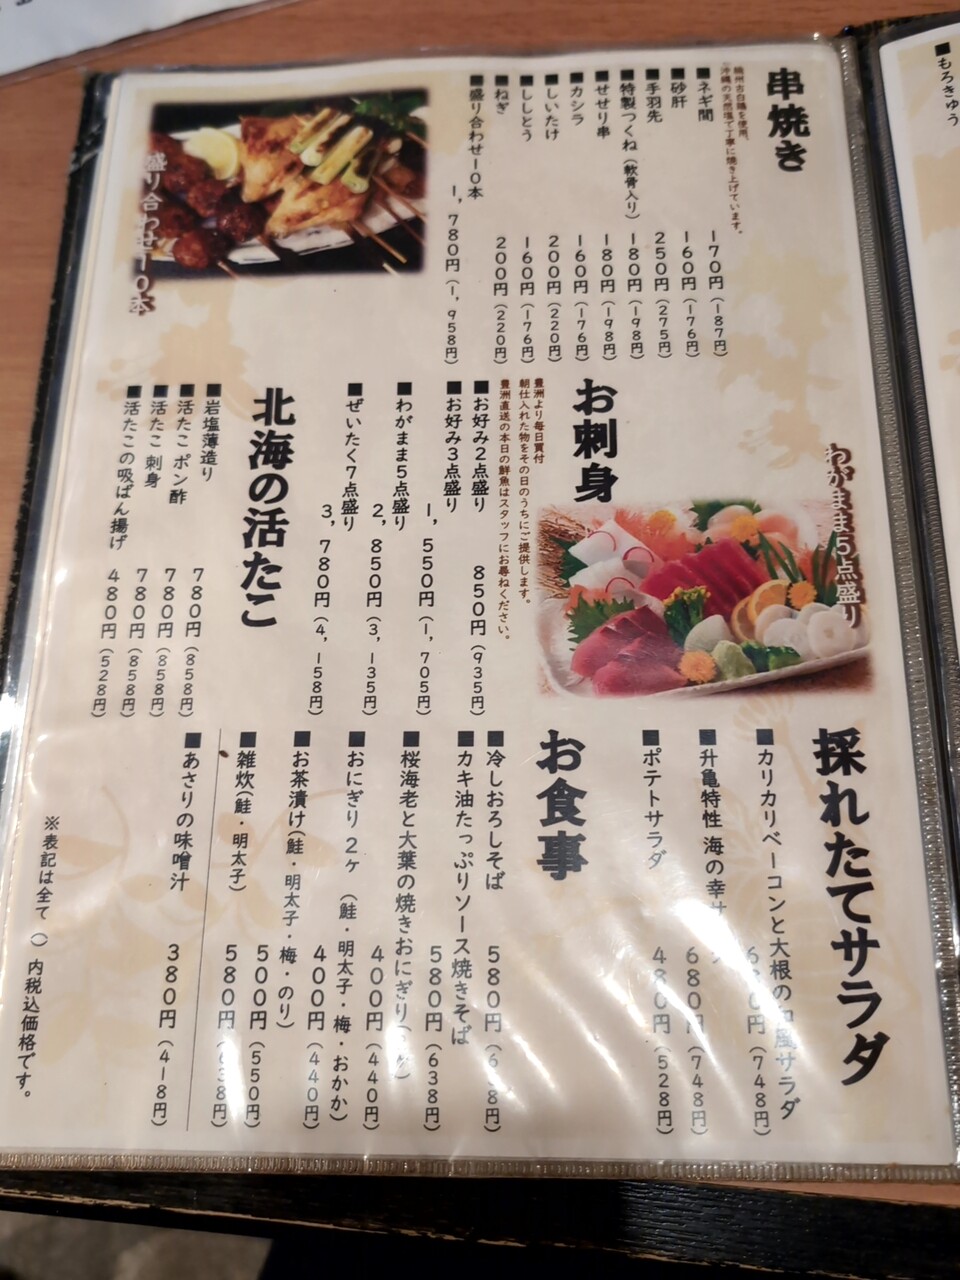 串焼き
播州吉白鶏を使用、
沖縄の天然塩で丁寧に焼き上げています。
■ネギ間 170円(187円)
■砂肝 160円(176円)
■手羽先 250円(275円)
■特製つくね(軟骨入り) 180円(198円)
■せせり串 180円(198円)
■カシラ 160円(176円)
■しいたけ 200円(220円)
■ししとう 160円(176円)
■ねぎ 200円(220円)
■盛り合わせ10本 1,780円(1,958円)
盛り合わせ10本
わがまま5点盛り
お刺身
豊洲より毎日買付
朝仕入れた物をその日のうちにご提供します。
豊洲直送の本日の鮮魚はスタッフにお尋ねください。
■お好み2点盛り 850円(935円)
■お好み3点盛り 1,550円(1,705円)
■わがまま5点盛り 2,850円(3,135円)
■ぜいたく7点盛り 3,780円(4,158円)
北海の活たこ
■岩塩薄造り 780円(858円)
■活たこ ポン酢 780円(858円)
■活たこ 刺身 780円(858円)
■活たこの吸ばん揚げ 480円(528円)
採れたてサラダ
■カリカリベーコンと大根の和風サラダ 680円(748円)
■升亀特性 海の幸サ 680円(748円)
■ポテトサラダ 480円(528円)
お食事
■冷しおろしそば 580円(638円)
■カキ油たっぷりソース焼きそば 580円(638円)
■桜海老と大葉の焼きおにぎり 400円(440円)
■おにぎり2ヶ(鮭・明太子・梅・おかか) 400円(440円)
■お茶漬け(鮭・明太子・梅・のり) 500円(550円)
■雑炊(鮭・明太子) 580円(638円)
■あさりの味噌汁 380円(418円)
※表記は全て()内税込価格です。
■もろきゅう